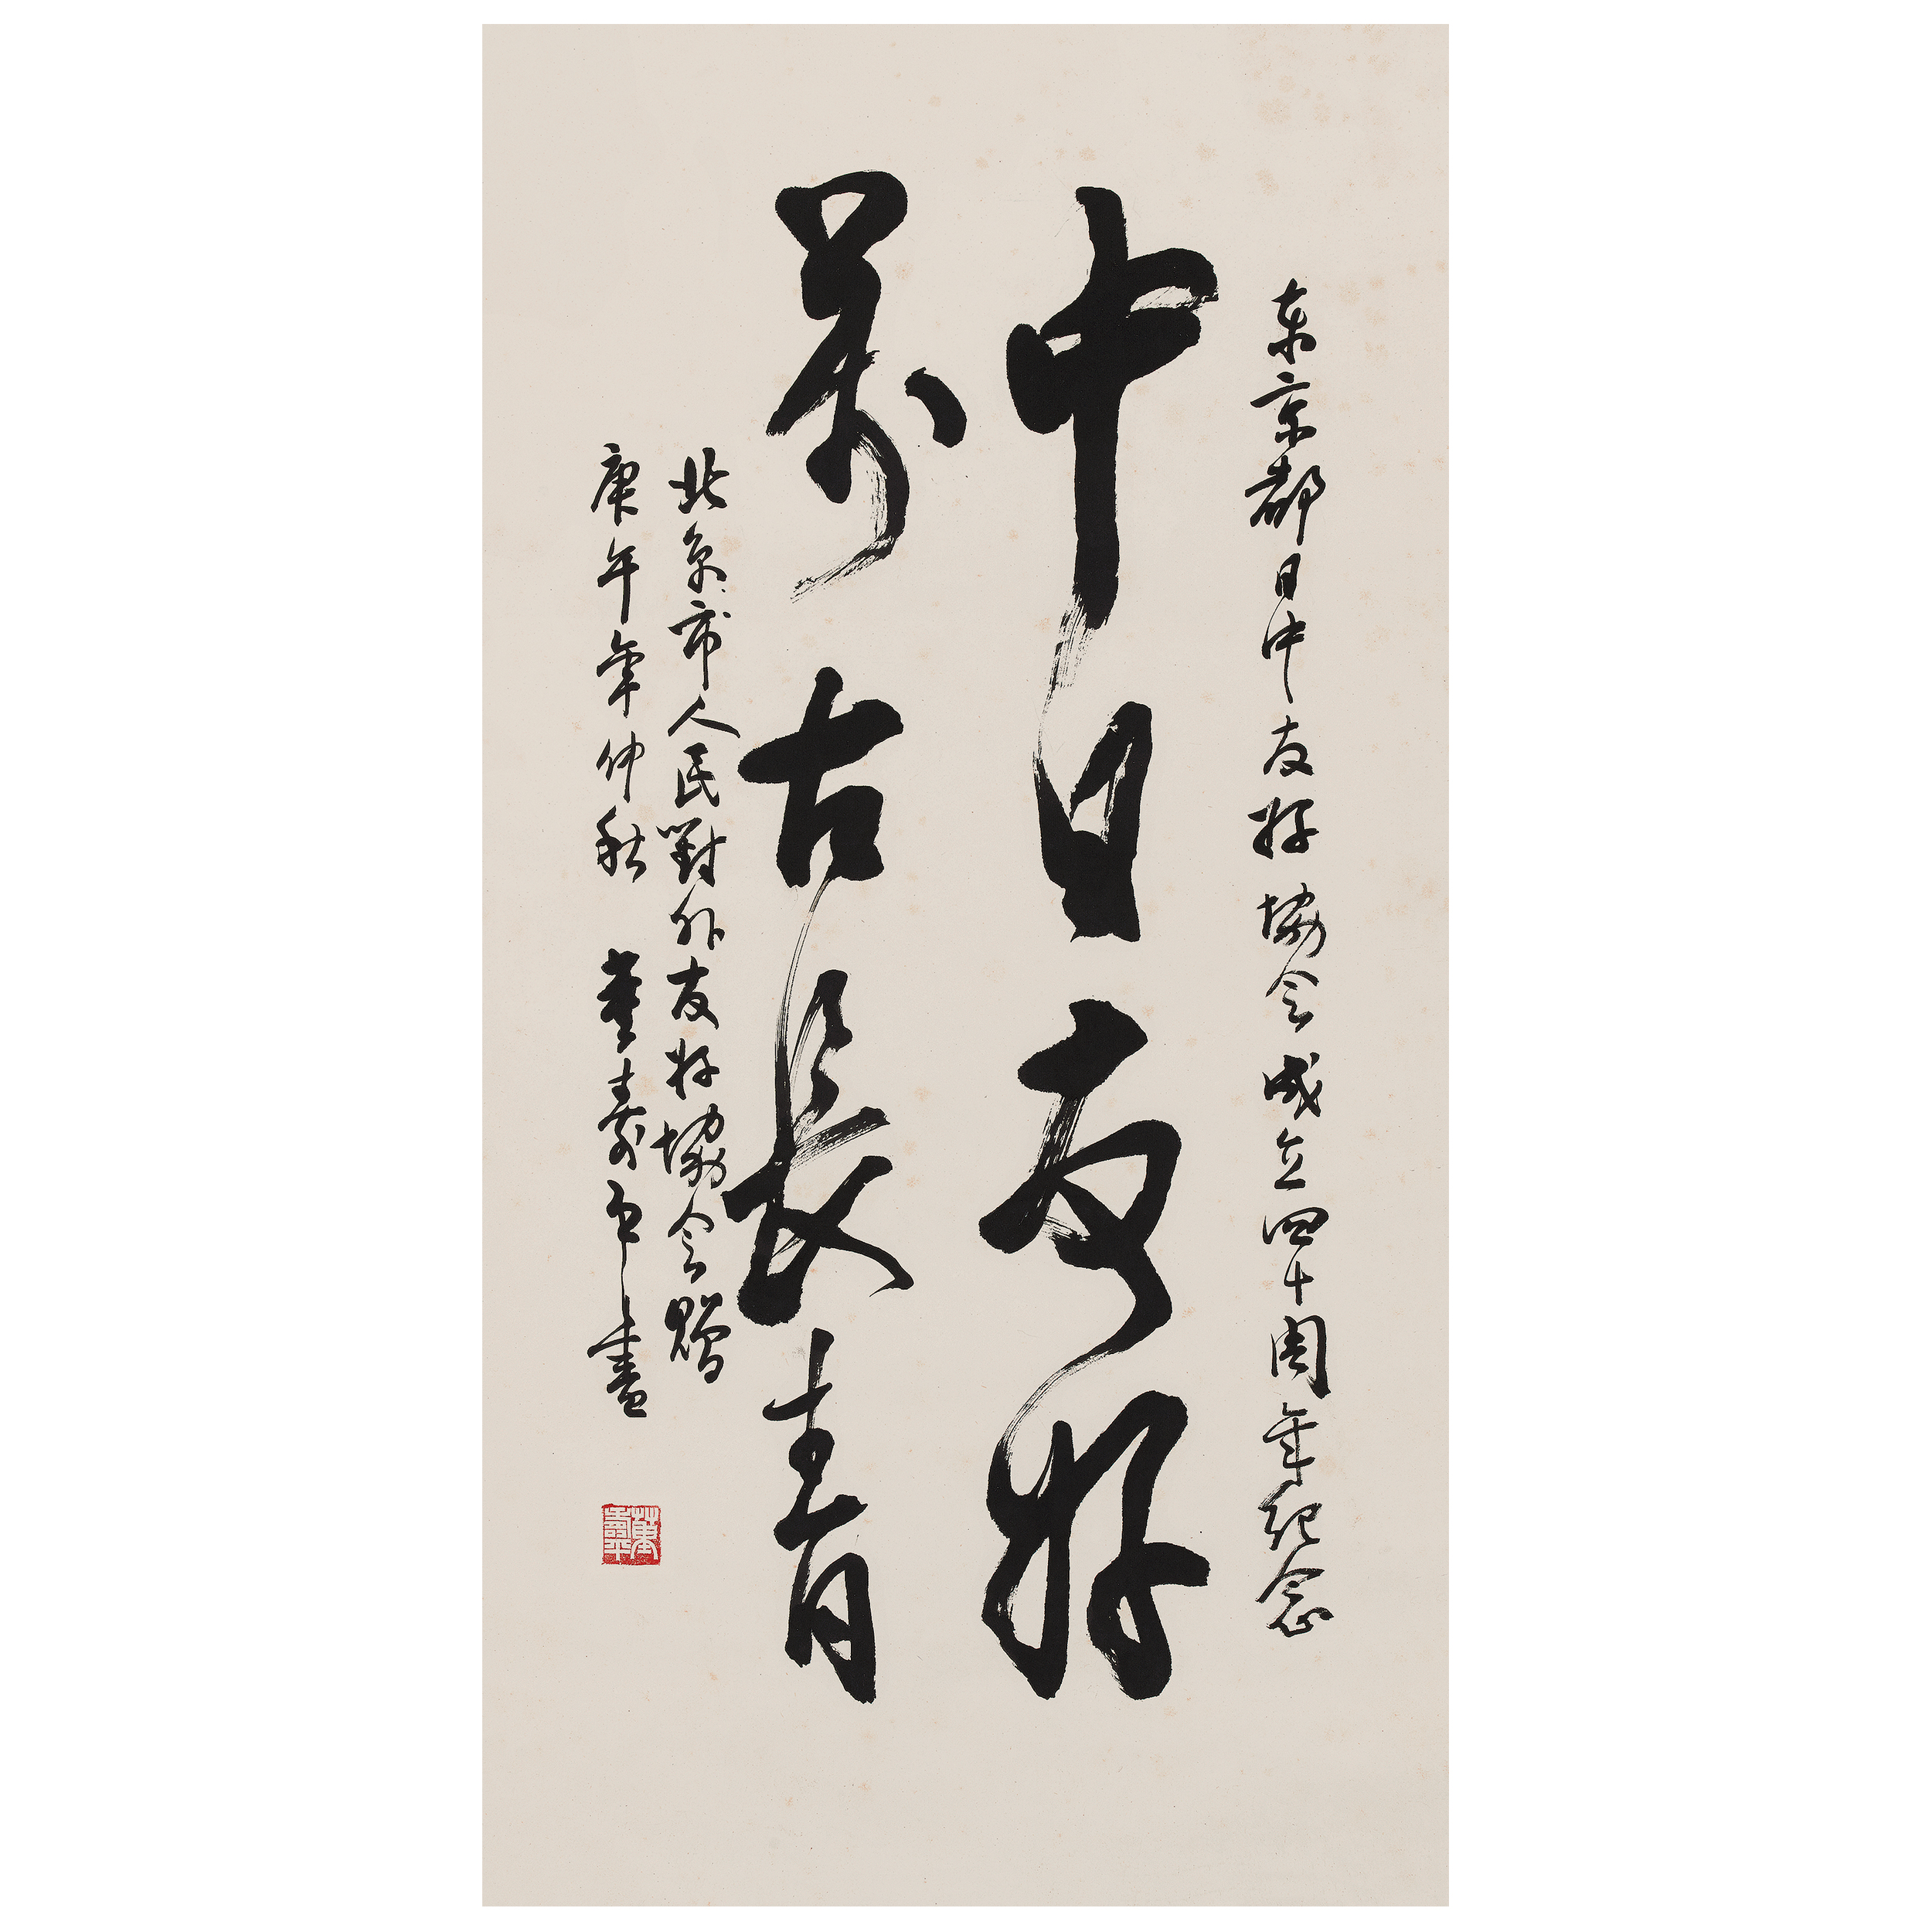 东京都日中友好協会成立四十周年纪念
中日友好
萬古長青
北京市人民對外友好協会贈
庚午年仲秋 董寿平書
董壽平